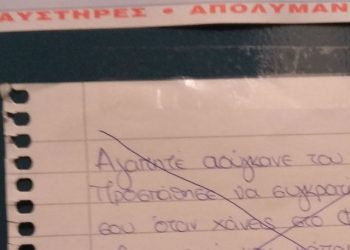 ΑΥΣΤΗΡΕΣ • ΑΠΟΛΥΜΑΝ
Αγαπητέ ασύγκανε του
Προσπάθησε να συγκρατι
σου όταν χάνεις στο